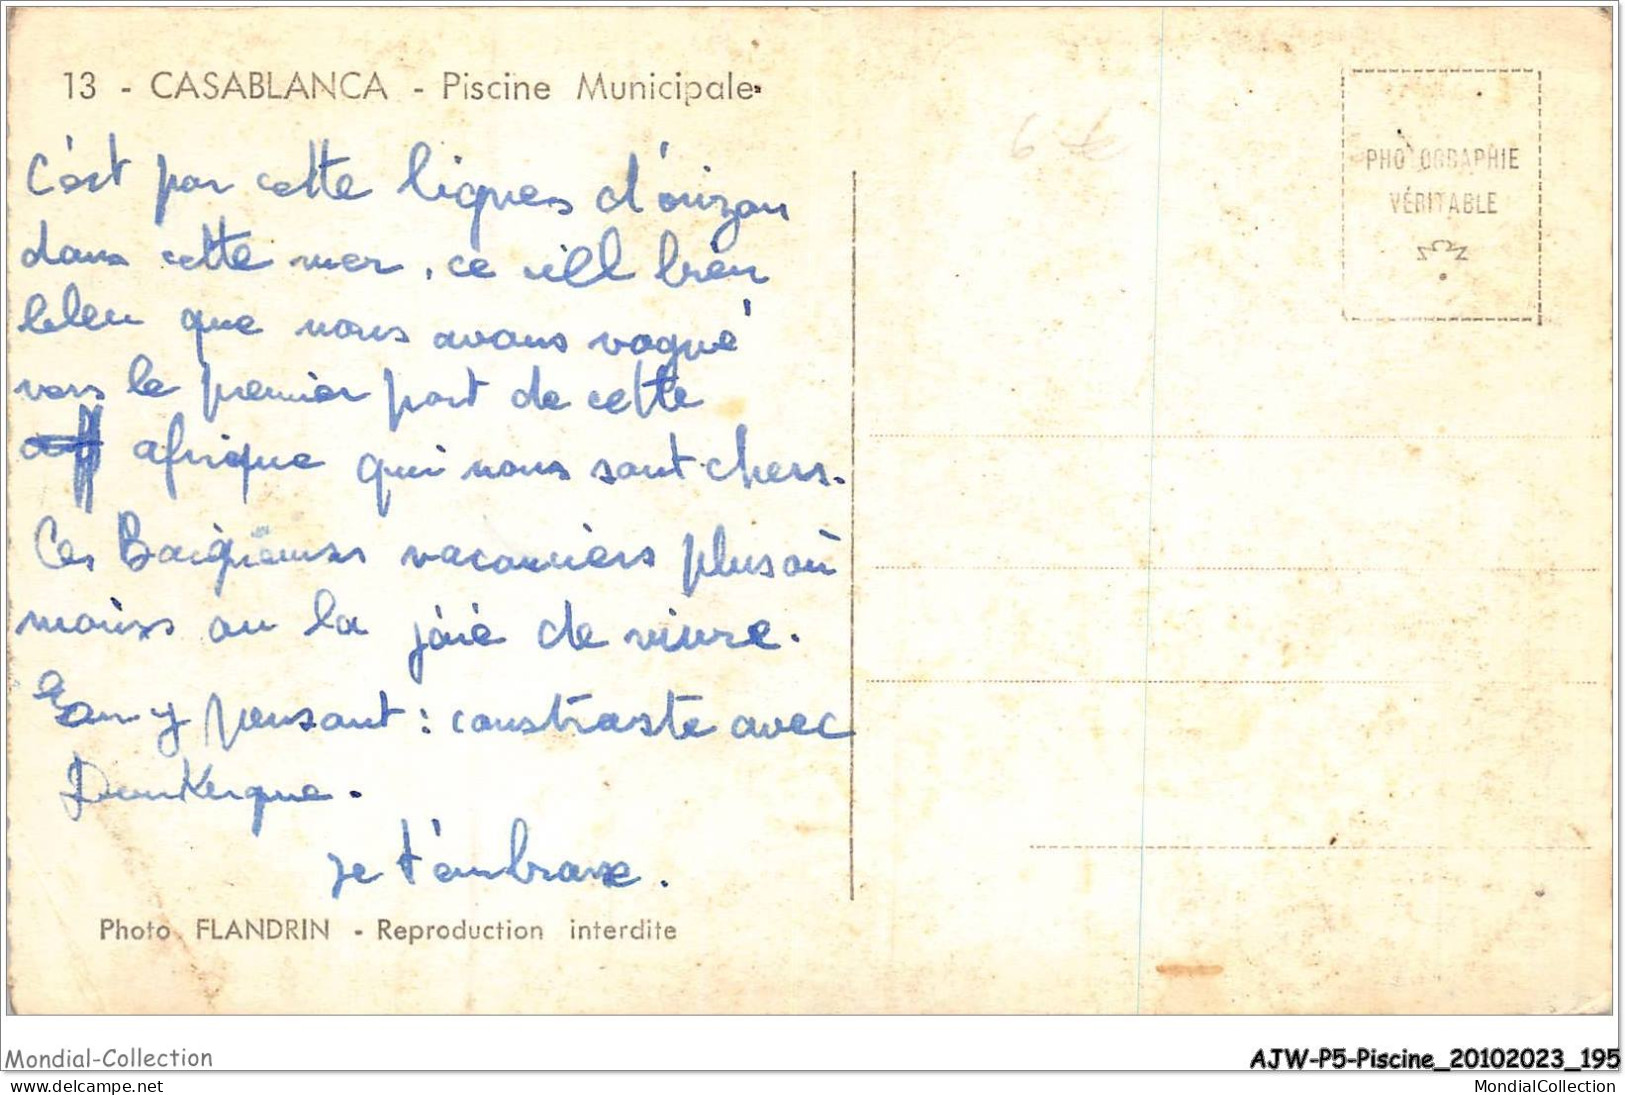 13 - CASABLANCA - Piscine Municipale
C'est par cette lignes d'orizon
dans cette mer, ce ill bien
bleu que nous avons vogué
vers le premier port de cette
afrique qui nous sont chers.
Ces Baigneuses vacanciers plus où
moins on la joie de vivre.
y pensant : constraste avec
Dunkerque.
je t'embrasse.
Photo FLANDRIN - Reproduction interdite
6 €
PHOTOGRAPHIE
VÉRITABLE
Mondial-Collection
AJW-P5-Piscine_20102023_195
www.delcampe.net
MondialCollection